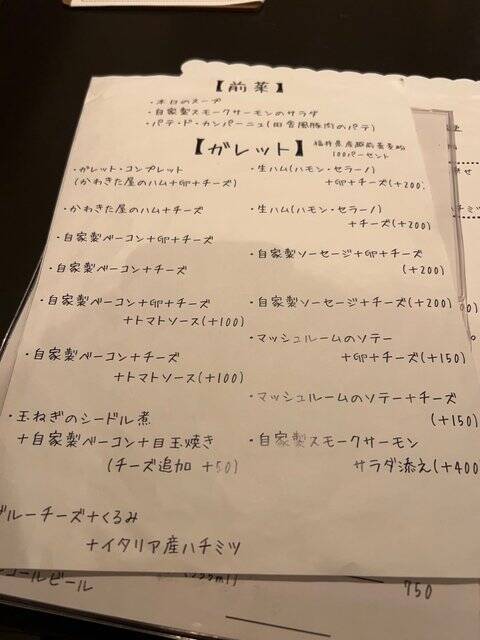 【前菜】
・本日のスープ
・自家製スモークサーモンのサラダ
・パテ・ド・カンパーニュ(田舎風豚肉のパテ)
【ガレット】
100パーセント
・ガレット・コンプレット
(かわきた屋のハム+卵+チーズ)
・かわきた屋のハム+チーズ
・自家製ベーコン+卵+チーズ
・自家製ベーコン+チーズ
・自家製ベーコン+卵+チーズ
+トマトソース(+100)
・自家製ベーコン+チーズ
+トマトソース(+100)
・玉ねぎのシードル煮
+自家製ベーコン+目玉焼き
(チーズ追加 +50)
ブルーチーズ+くるみ
+イタリア産ハチミツ
・生ハム(ハモン・セラーノ)
+卵+チーズ(+200)
・生ハム(ハモン・セラーノ)
+チーズ(+200)
・自家製ソーセージ+卵+チーズ
(+200)
・自家製ソーセージ+チーズ(+200)
・マッシュルームのソテー
+卵+チーズ(+150)
・マッシュルームのソテー+チーズ
(+150)
・自家製スモークサーモン
サラダ添え(+400
コールビール
750